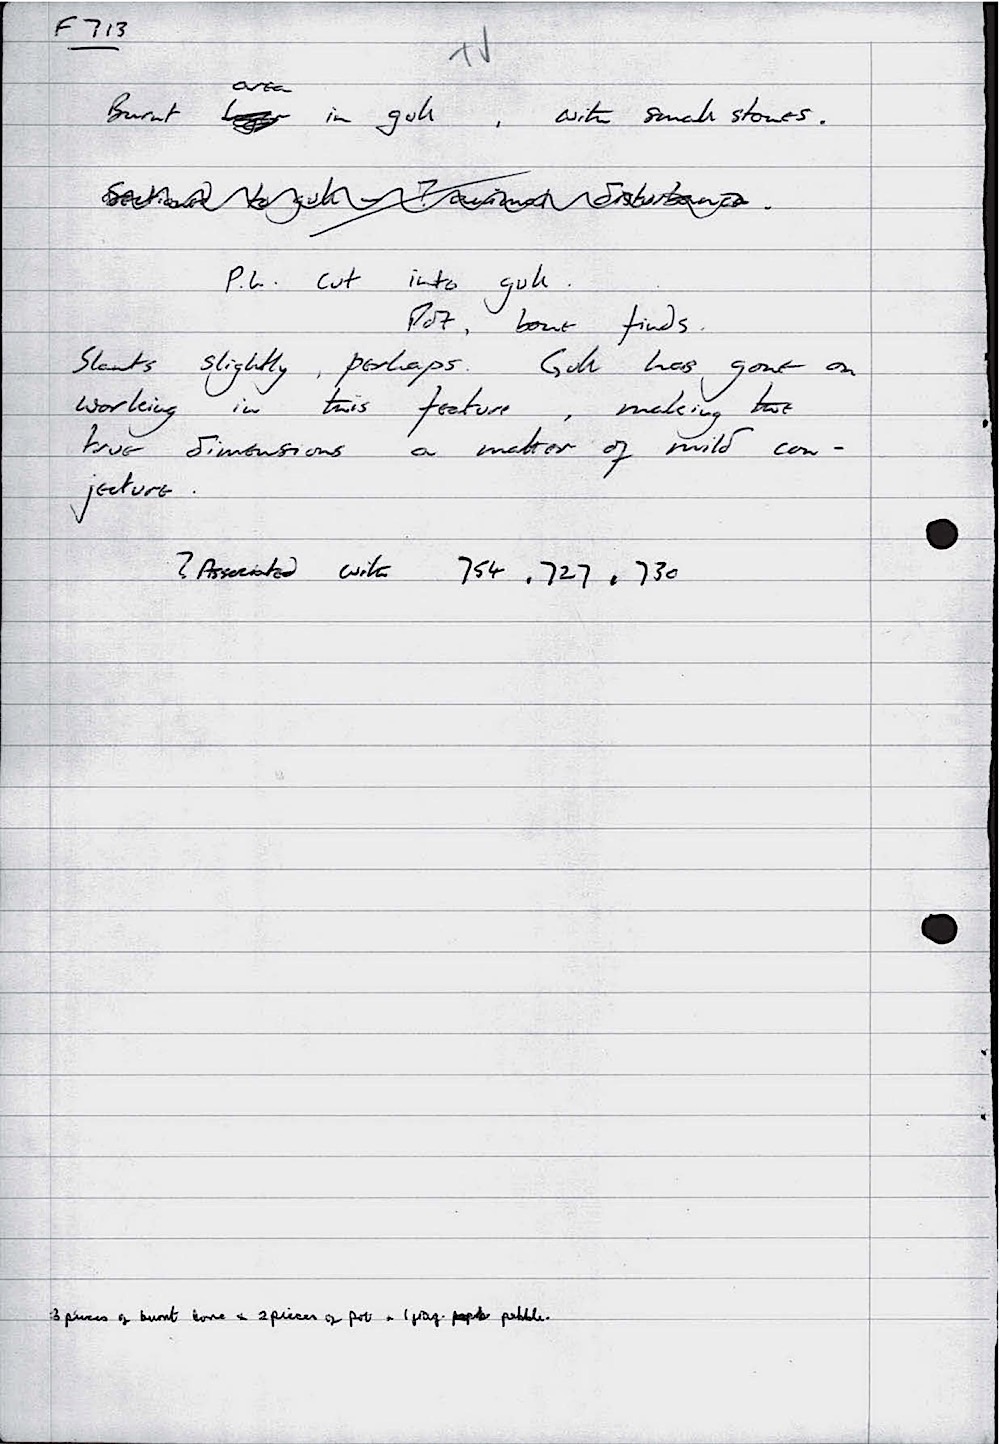 F 713
area
Burnt in gull, with small stones.
Sectioned to gull - ? animal disturbance.
P.h. cut into gull.
Pot, bone finds.
Slants slightly, perhaps. Gull has gone on
working in this feature, making the
true dimensions a matter of mild con-
jecture.
? Associated with 754, 727, 730
3 pieces of burnt bone & 2 pieces of pot & 1 frag. pebble.